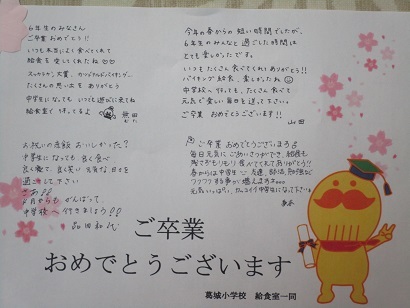 6年生のみなさん
ご卒業おめでとう!!
いつも本当によく食べてくれて
給食を愛してくれたね
たくさんの思い出をありがとう
中学生になっても いつでも遊びに来てね
給食室で待ってるよ
今年の春からの短い時間でしたが、
6年生のみんなと過ごした時間は
とても楽しかったです。
いつもたくさん食べてくれてありがとう!!
バイキング給食、楽しかったね
中学校へ行っても、たくさん食べて
元気で楽しい毎日を送って下さい。
ご卒業 おめでとうございます!!
山田
お祝いの赤飯 おいしかった?
中学生になっても 良く食べ
良く寝て、良く笑い 元気な日々を
過して下さい
4月からも がんばって、
中学校へ行きましょう!!
品田
ご卒業おめでとうございます
毎日元気にごあいさつができ、給食も
残さずもりもり食べてくれてありがとう!!
春からは中学生
ワクワクする事が増えますネ
元気いっぱい、カッコイイ中学生になって下さい
ご卒業
おめでとうございます
葛城小学校 給食室一同